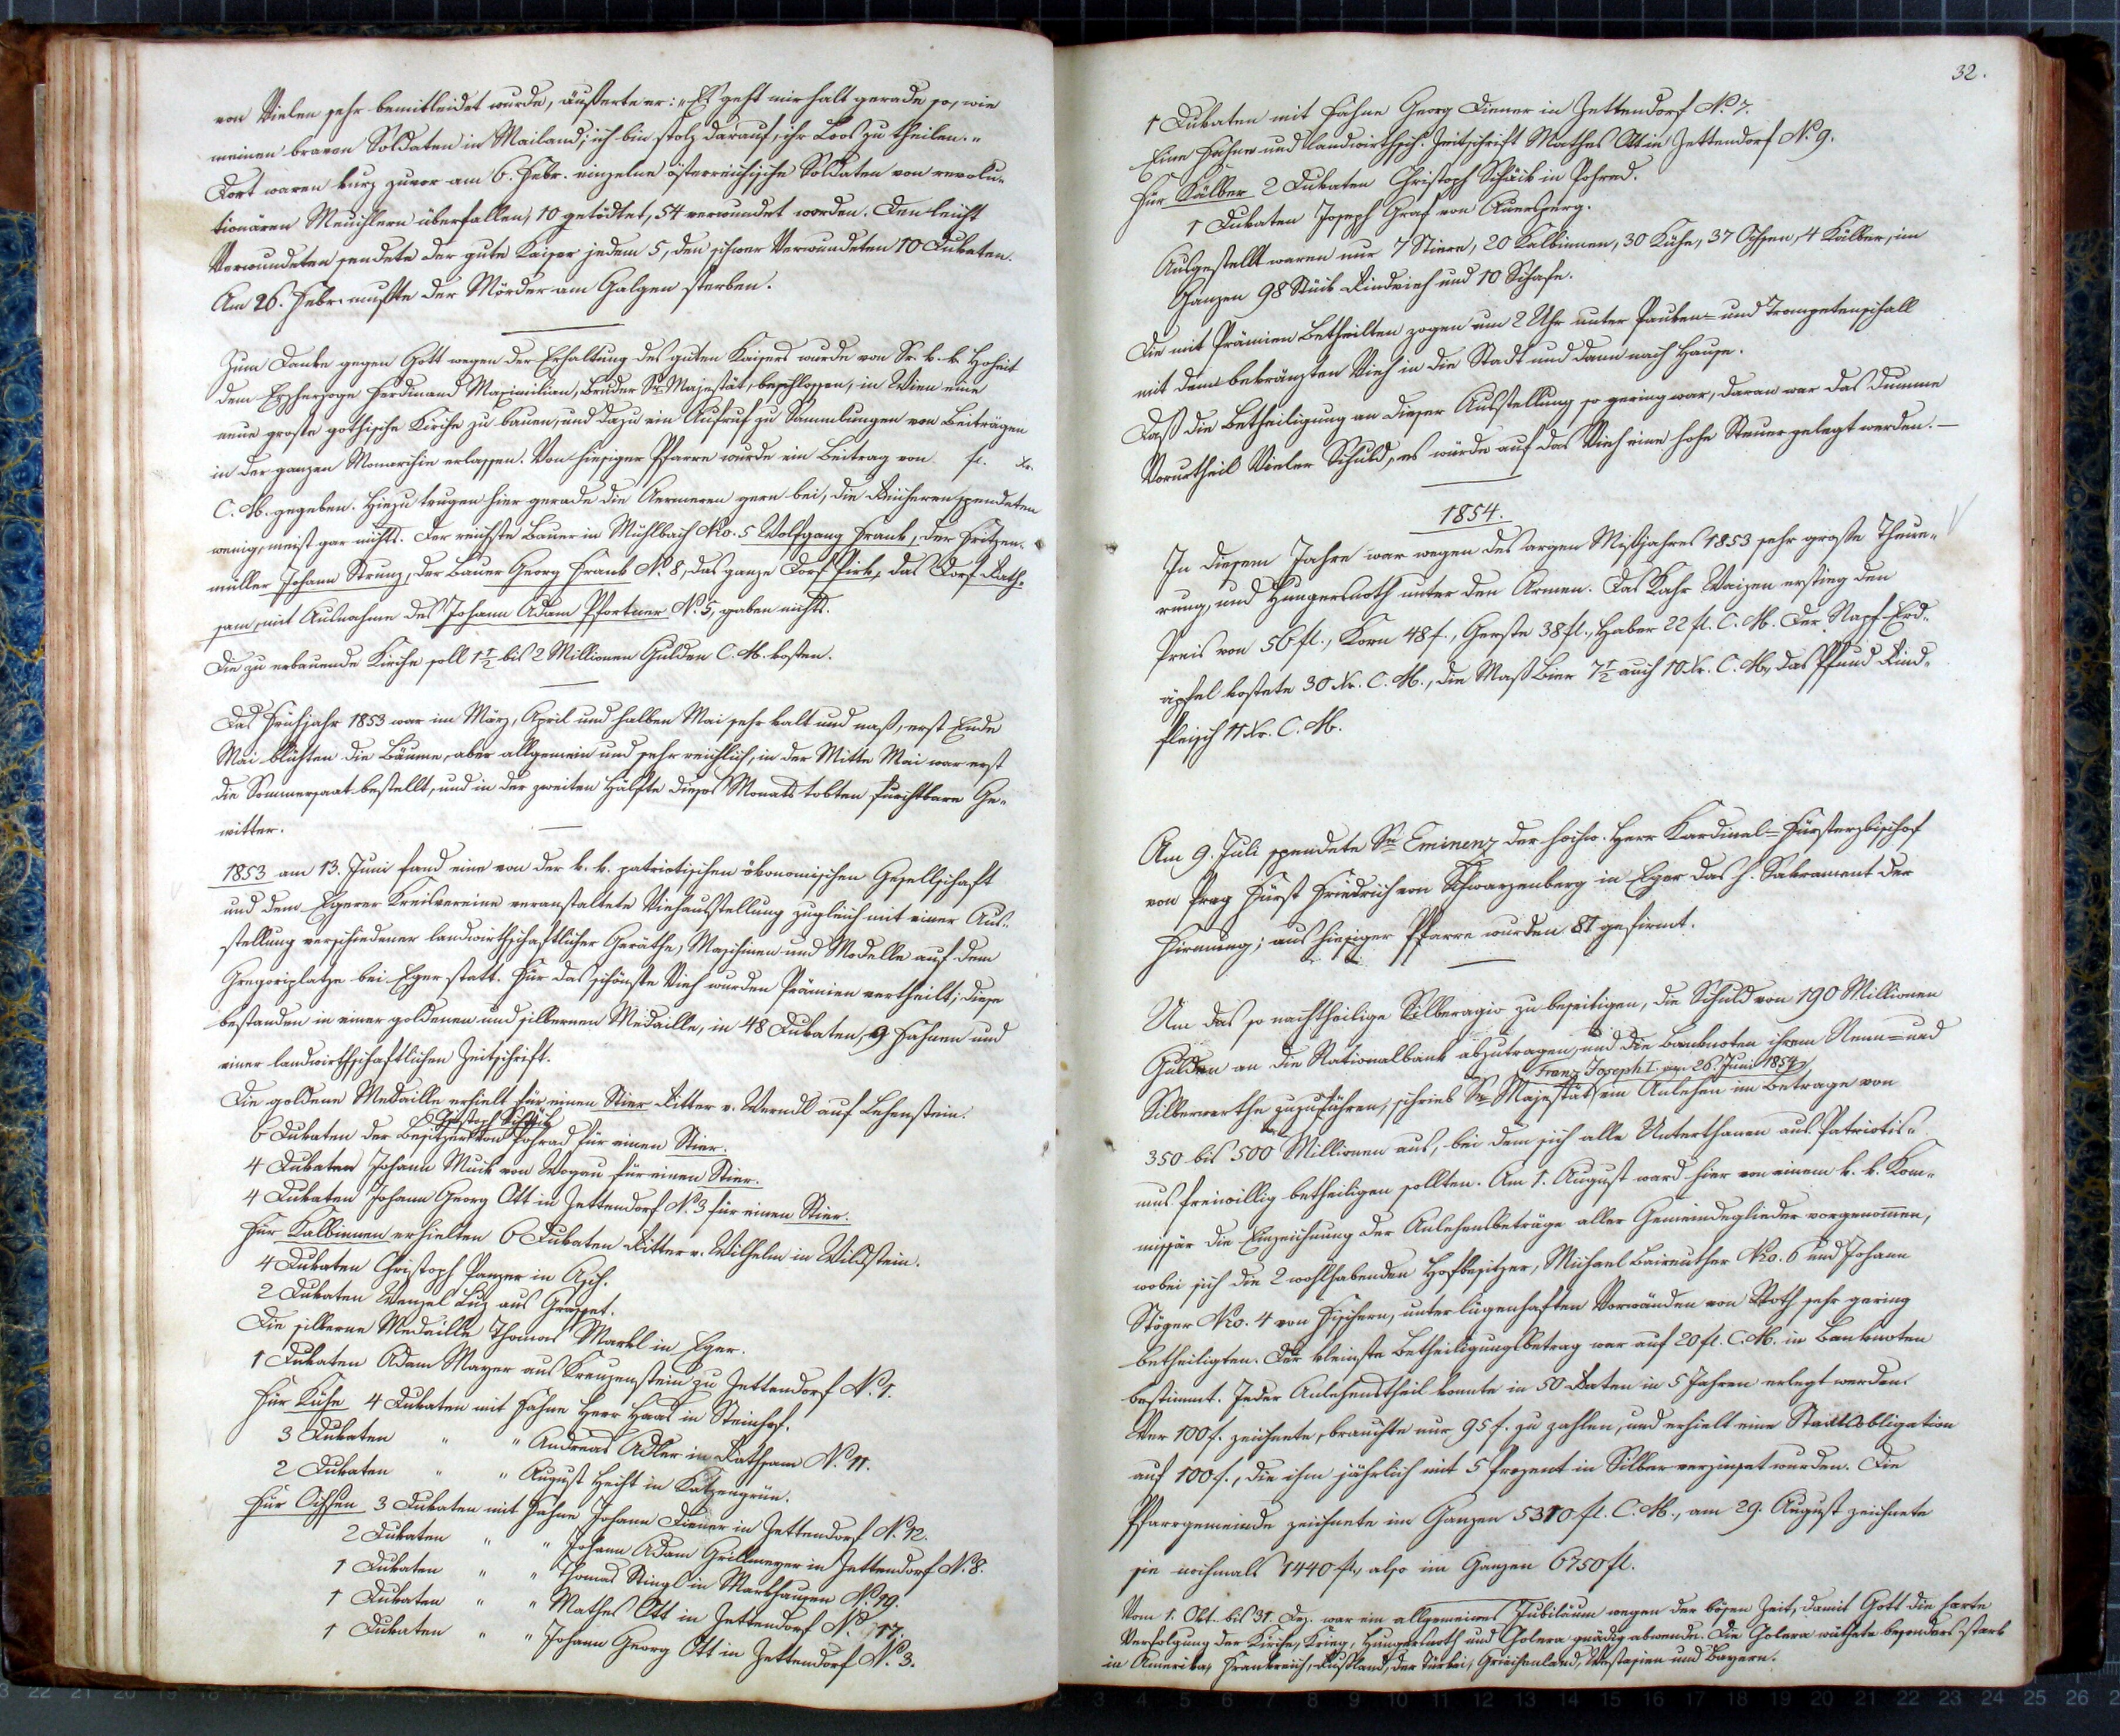 von Vielen sehr bemitleidet wurde, äußerte er: „Es geht mir halt gerade so, wie
meinen braven Soldaten in Mailand; ich bin stolz darauf, ihr Loos zu theilen.„
Dort waren kurz zuvor am 6. Febr. einzelne österreichische Soldaten von revolu-
tionären Meuchlern überfallen, 10 getödtet, 54 verwundet worden. Den leicht
Verwundeten sendete der gute Kaiser jedem 5, den schwer Verwundeten 10 Dukaten.
Am 26. Febr. mußte der Mörder am Galgen sterben.
Zum Danke gegen Gott wegen der Erhaltung des guten Kaisers wurde von Sr. k. k. Hoheit
dem Erzherzoge Ferdinand Maximilian, Bruder Sr. Majestät, beschlossen, in Wien eine
neue große gothische Kirche zu bauen, und dazu ein Aufruf zu Sammlungen von Beiträgen
in der ganzen Monarchie erlassen. Von hiesiger Pfarre wurde ein Beitrag von fl. Xr.
C. M. gegeben. Hiezu trugen hier gerade die Aermeren gern bei, die Reicheren spendeten
wenig, meist gar nichts. Der reichste Bauer in Mühlbach No. 5 Wolfgang Frank, der Fritzen-
müller Johann Strunz, der Bauer Georg Frank No. 8, das ganze Dorf Pirk, das Dorf Rath-
sam, mit Ausnahme des Johann Adam Pfortner No. 5, gaben nichts.
Die zu erbauende Kirche soll 1½ bis 2 Millionen Gulden C. M. kosten.
Das Frühjahr 1853 war im März, April und halben Mai sehr kalt und naß, erst Ende
Mai blühten die Bäume, aber allgemein und sehr reichlich, in der Mitte Mai war erst
die Sommersaat bestellt, und in der zweiten Hälfte dieses Monats tobten furchtbare Ge-
witter.
1853 am 13. Juni fand eine von der k. k. patriotischen ökonomischen Gesellschaft
und dem Egerer Kreisvereine veranstaltete Viehausstellung zugleich mit einer Aus-
stellung verschiedener landwirthschaftlicher Geräthe, Maschinen und Modelle auf dem
Gregoriplatze bei Eger statt. Für das schönste Vieh wurden Prämien vertheilt; diese
bestanden in einer goldenen und silbernen Medaille, in 48 Dukaten, 9 Fahnen und
einer landwirthschaftlichen Zeitschrift.
Die goldene Medaille erhielt für einen Stier Ritter v. Werndl auf Lehenstein.
Christoph Schäck
6 Dukaten der Besitzer von Pohrad für einen Stier.
4 Dukaten Johann Muck von Wogau für einen Stier.
4 Dukaten Johann Georg Ott in Zettendorf No. 3 für einen Stier.
Für Kalbinnen erhielten 6 Dukaten Ritter v. Wilhelm in Wildstein.
4 Dukaten Christoph Panzer in Asch.
2 Dukaten Wenzel Lug aus Grasset.
Die silberne Medaille Thomas Markl in Eger.
1 Dukaten Adam Mayer aus Kreuzenstein zu Zettendorf No. 1.
Für Kühe 4 Dukaten mit Fahne Herr Haas in Steinhof.
3 Dukaten " " Andreas Adler in Rathsam No. 11.
2 Dukaten " " August Hecht in Katzengrün.
Für Ochsen 3 Dukaten mit Fahne Johann Diener in Zettendorf No. 12.
2 Dukaten " " Johann Adam Grillmeyer in Zettendorf No. 8.
1 Dukaten " " Thomas Stingl in Markhausen No. 19.
1 Dukaten " " Mathes Ott in Zettendorf No. 17.
1 Dukaten " " Johann Georg Ott in Zettendorf No. 3.
32.
1 Dukaten mit Fahne Georg Diener in Zettendorf No. 7.
Eine Fahne und landwirthsch. Zeitschrift Mathes Ott in Zettendorf No. 9.
Für Kälber 2 Dukaten Christoph Schäck in Pohrad.
1 Dukaten Joseph Graf von Auersperg.
Ausgestellt waren nur 7 Stiere, 20 Kalbinnen, 30 Kühe, 37 Ochsen, 4 Kälber, im
Ganzen 98 Stück Rindvieh und 10 Schafe.
Die mit Prämien Betheilten zogen um 2 Uhr unter Pauken- und Trompetenschall
mit dem bekränzten Vieh in die Stadt und dann nach Hause.
Daß die Betheiligung an dieser Ausstellung so gering war, daran war das dumme
Vorurtheil Vieler Schuld, es würde auf das Vieh eine hohe Steuer gelegt werden.—
1854.
In diesem Jahre war wegen des argen Mißjahres 1853 sehr große Theue-
rung, und Hungersnoth unter den Armen. Das Kahr Waizen erstieg den
Preis von 56 fl., Korn 48 f., Gerste 38 fl., Haber 22 fl. C. M. Der Napf Erd-
äpfel kostete 30 Xr. C. M., die Maß Bier 7½ auch 10 Xr. C. M., das Pfund Rind-
fleisch 11 Xr. C. M.
Am 9. Juli spendete Se Eminenz der hochw. Herr Kardinal-Fürsterzbischof
von Prag Fürst Friedrich von Schwarzenberg in Eger das h. Sakrament der
Firmung; aus hiesiger Pfarre wurden 81 gefirmt.
Um das so nachtheilige Silberagio zu beseitigen, die Schuld von 190 Millionen
Gulden an die Nationalbank abzutragen, und die Banknoten ihrem Nenn- und
Franz Joseph I. am 26. Juni 1854
Silberwerthe zuzuführen, schrieb Se Majestät ein Anlehen im Betrage von
350 bis 500 Millionen aus, bei dem sich alle Unterthanen aus Patriotis-
mus freiwillig betheiligen sollten. Am 1. August ward hier von einem k. k. Kom-
missär die Einzeichnung der Anlehensbeträge aller Gemeindeglieder vorgenommen,
wobei sich die 2 wohlhabenden Hofbesitzer, Michael Baireuther No. 6 und Johann
Stöger No. 4 von Fischern, unter lügenhaften Vorwänden von Noth sehr gering
betheiligten. Der kleinste Betheiligungsbetrag war auf 20 fl. C. M. in Banknoten
bestimmt. Jeder Anlehenstheil konnte in 50 Raten in 5 Jahren erlegt werden.
Wer 100 f. zeichnete, brauchte nur 95 f. zu zahlen, und erhielt eine Staatsobligation
auf 100 f., die ihm jährlich mit 5 Prozent in Silber verzinset wurden. Die
Pfarrgemeinde zeichnete im Ganzen 5310 fl. C. M., am 29. August zeichnete
sie nochmals 1440 fl., also im Ganzen 6750 fl.
Vom 1. Okt. bis 31. Dez. war ein allgemeines Jubiläum wegen der bösen Zeit, damit Gott die harte
Verfolgung der Kirche, Krieg, Hungersnoth und Cholera gnädig abwende. Die Cholera wüthete besonders stark
in Amerika, Frankreich, Rußland, der Türkei, Griechenland, Westasien und Bayern.